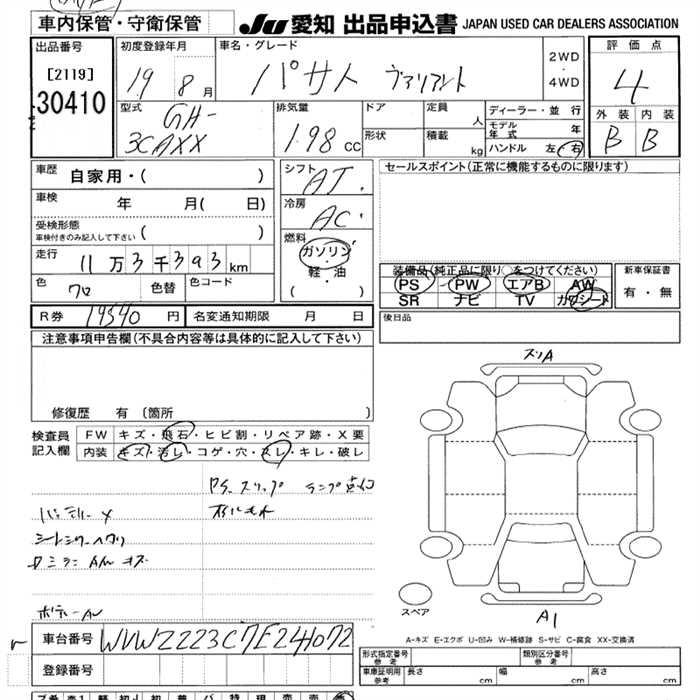 車内保管・守衛保管
JU 愛知 出品申込書 JAPAN USED CAR DEALERS ASSOCIATION
出品番号
[2119]
30410
初度登録年月
19 8 月
車名・グレード
パサト ヴァリアント
2WD
・
4WD
評価点
4
外装 内装
B B
型式
GH-
3CAXX
排気量
1.98 CC
ドア
形状
定員 人
積載 kg
ディーラー・並行
モデル年式 年
ハンドル 左・右
車歴
自家用・( )
車検 年 月( 日)
受検形態
車検付きのみ記入して下さい ( )
走行
11万3千393km
色
クロ
色替
色コード
シフト
AT.
冷房
AC.
燃料
ガソリン
・
軽・油
( )
セールスポイント(正常に機能するものに限ります)
装備品(純正品に限り○をつけてください)
PS PW エアB AW
SR ナビ TV カワシート
新車保証書
有・無
R券 19540 円
名変通知期限 月 日
後日品
注意事項申告欄(不具合内容等は具体的に記入して下さい)
修復歴 有 〔箇所 〕
検査員
記入欄
FW キズ・飛石・ヒビ割・リペア跡・X要
内装 キズ・汚レ・コゲ・穴・スレ・キレ・破レ
スリA
スペア
A1
A-キズ E-エクボ U-凹み W-補修跡 S-サビ C-腐食 XX-交換済
車台番号
WVWZZZ3CZ7E241072
登録番号
形式指定番号
参考
類別区分番号
参考
車庫証明用
参考
長さ cm 幅 cm 高さ cm